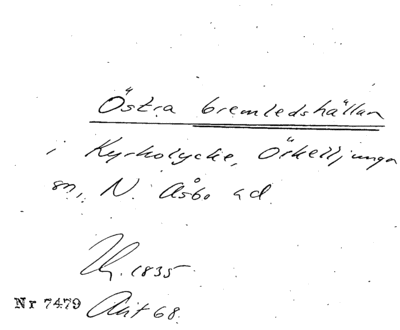 Östra bremledshällan
i Kyrkolycke, Örkelljunga
sn, N. Åsbo hd
1835
Nr 7479 Akt 68.